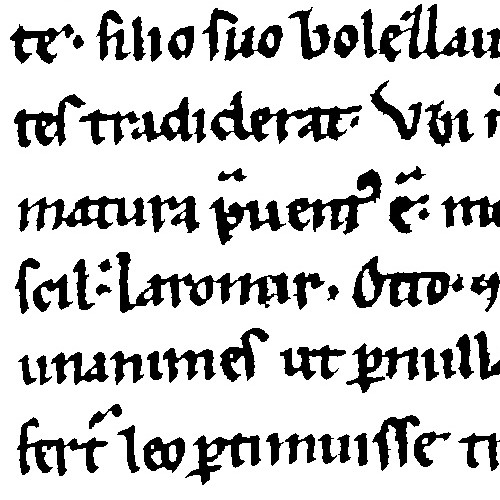 te. filio suo bolezlau
tes tradiderat. Vbi
matura puent' e.
scil. laromir. Otto.
unanimes ut pmilla
fert leo ptimuisse